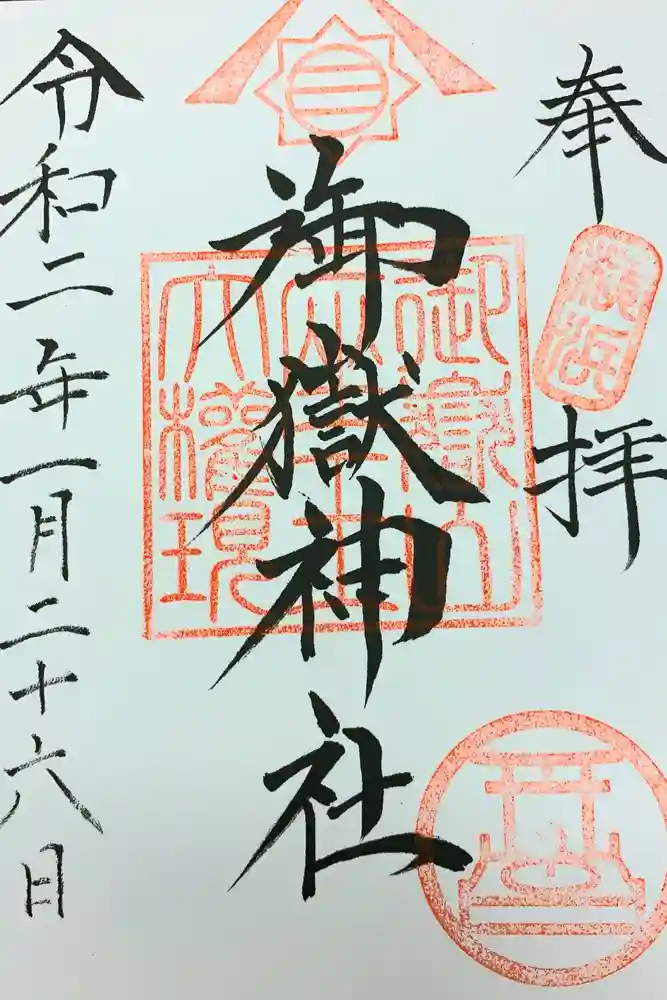 奉拝
横浜
御嶽神社
令和二年一月二十六日